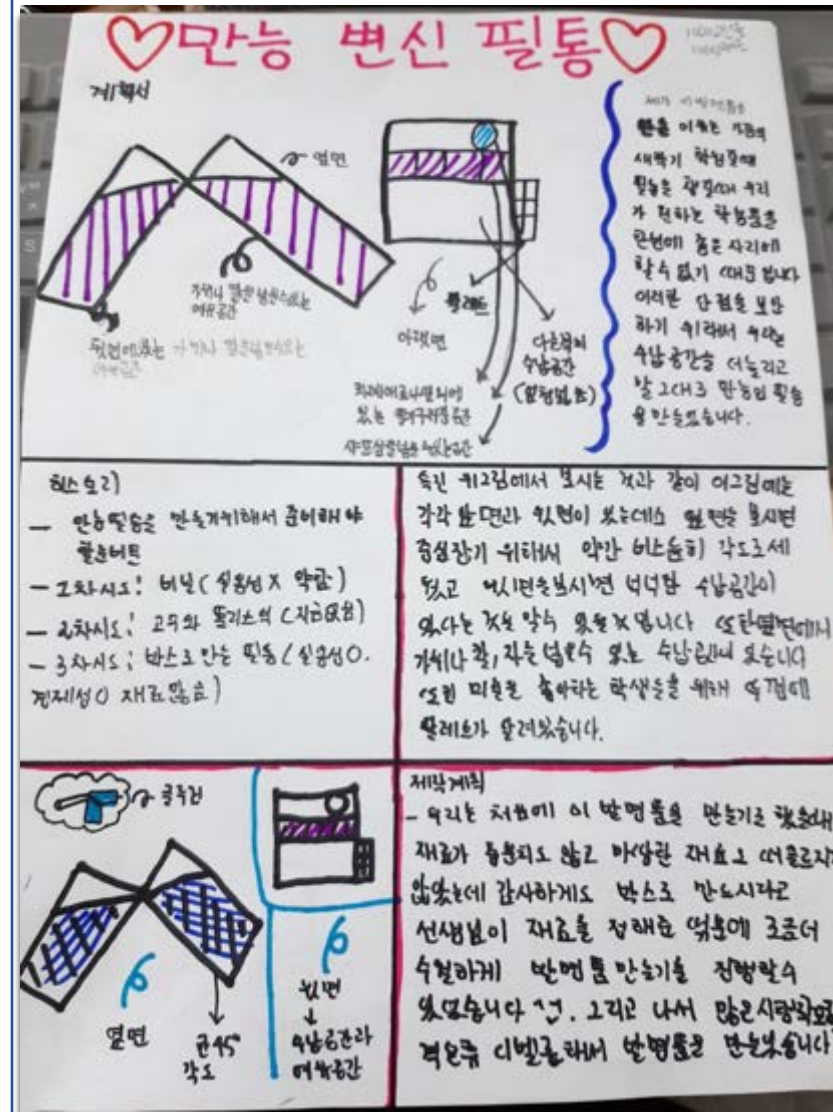 만능 변신 필통
계획서
옆면
가위나 칼만 넣을수있는
여유공간
뒷면에있는 가위나 칼만넣을수있는
여유공간
아랫면
팔레트
다른쪽의
수납공간
(칼 넣음)
있는 공간
샤프심을넣을수있는공간
제가 이 발명품을
만든 이유는
새학기
필통을 챙길때 우리
가 원하는 학용품을
한번에 좁은 자리에
할수 없기 때문입니다
이러한 단점을 보완
하기 위해서 우리는
수납공간을 더늘리고
말 그대로 만능인 필통
을 만들었습니다.
히스토리
— 만능필통을 만들기위해서 준비해야
— 1차시도! 비닐(실용성X 약함)
— 2차시도!
— 3차시도; 박스로만든 필통(실용성O.
경제성O 재료많음)
위그림에서 보시는 것과 같이 이그림에는
각각 앞면과 뒷면이 있는데 옆면을 보시면
중심잡기 위해서 약간 비스듬히 각도로세
웠고 뒷면을보시면 넉넉한 수납공간이
있다는 것을 알수 있을것 입니다 또한옆면에서
가위나 칼,자를넣을수 있는 수납공간이 있습니다
또한 미술을 좋아하는 학생들을 위해
팔레트가 달려있습니다.
옆면
각도
뒷면
수납공간과
여유공간
제작계획
- 우리는 처음에 이 발명품을 만들기로 했을때
재료가 충분치도 않고 마땅한 재료도 떠오르지
않았는데 감사하게도 박스로 만드시라고
선생님이 재료를 정해준 덕분에 조금더
수월하게 발명품만들기를 진행할수
있었습니다 ^^. 그리고 나서 많은시행착오를
겪은후 발명품을 만들었습니다